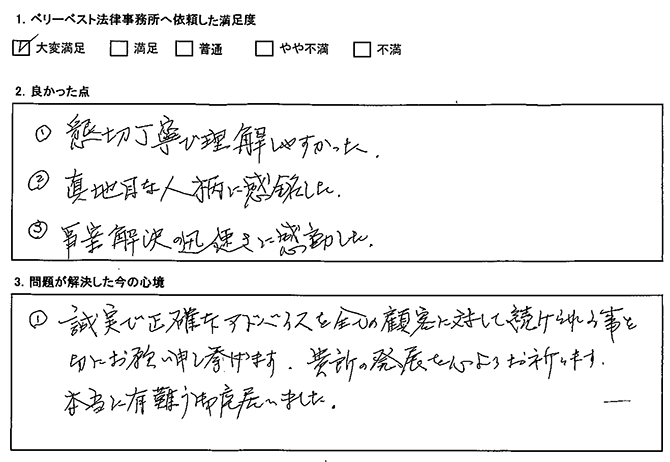 1. ベリーベスト法律事務所へ依頼した満足度
☑ 大変満足 □ 満足 □ 普通 □ やや不満 □ 不満
2. 良かった点
① 懇切丁寧で理解しやすかった.
② 真地目な人柄に感銘した.
③ 事案解決の迅速さに感動した.
3. 問題が解決した今の心境
① 誠実で正確なアドバイスを全ての顧客に対して続けられる事を
切にお願い申し挙げます. 貴所の発展を心よりお祈ります.
本当に有難う御座居ました.